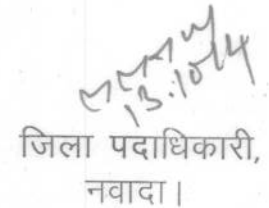 13.10.14
जिला पदाधिकारी,
नवादा।